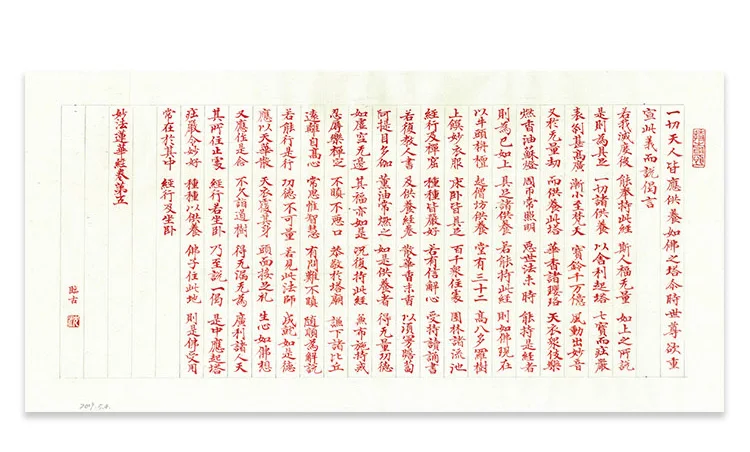 一切天人皆應供養如佛之塔尒時世尊欲重
宣此義而說偈言
若我滅度後 能奉持此經 斯人福无量 如上之所說
是則為具足 一切諸供養 以舍利起塔 七寶而莊嚴
表剎甚高廣 漸小至梵天 寶鈴千万億 風動出妙音
又於无量劫 而供養此塔 華香諸瓔珞 天衣衆伎樂
燃香油蘇燈 周帀常照明 惡世法末時 能持是經者
則為已如上 具足諸供養 若能持此經 則如佛現在
以牛頭栴檀 起僧坊供養 堂有三十二 高八多羅樹
上饌妙衣服 床卧皆具足 百千衆住處 園林諸流池
經行及禪窟 種種皆嚴好 若有信解心 受持讀誦書
若復教人書 及供養經卷 散華香末香 以須曼瞻蔔
阿提目多伽 薰油常燃之 如是供養者 得无量功德
如虛空无邊 其福亦如是 況復持此經 兼布施持戒
忍辱樂禪定 不瞋不惡口 恭敬於塔廟 謙下諸比丘
遠離自高心 常思惟智慧 有問難不瞋 隨順為解說
若能行是行 功德不可量 若見此法師 成就如是德
應以天華散 天衣覆其身 頭面接足礼 生心如佛想
又應作是念 不久詣道樹 得无漏无為 廣利諸人天
其所住止處 經行若坐卧 乃至說一偈 是中應起塔
莊嚴令妙好 種種以供養 佛子住此地 則是佛受用
常在於其中 經行及坐卧
妙法蓮華經卷第五
臨古